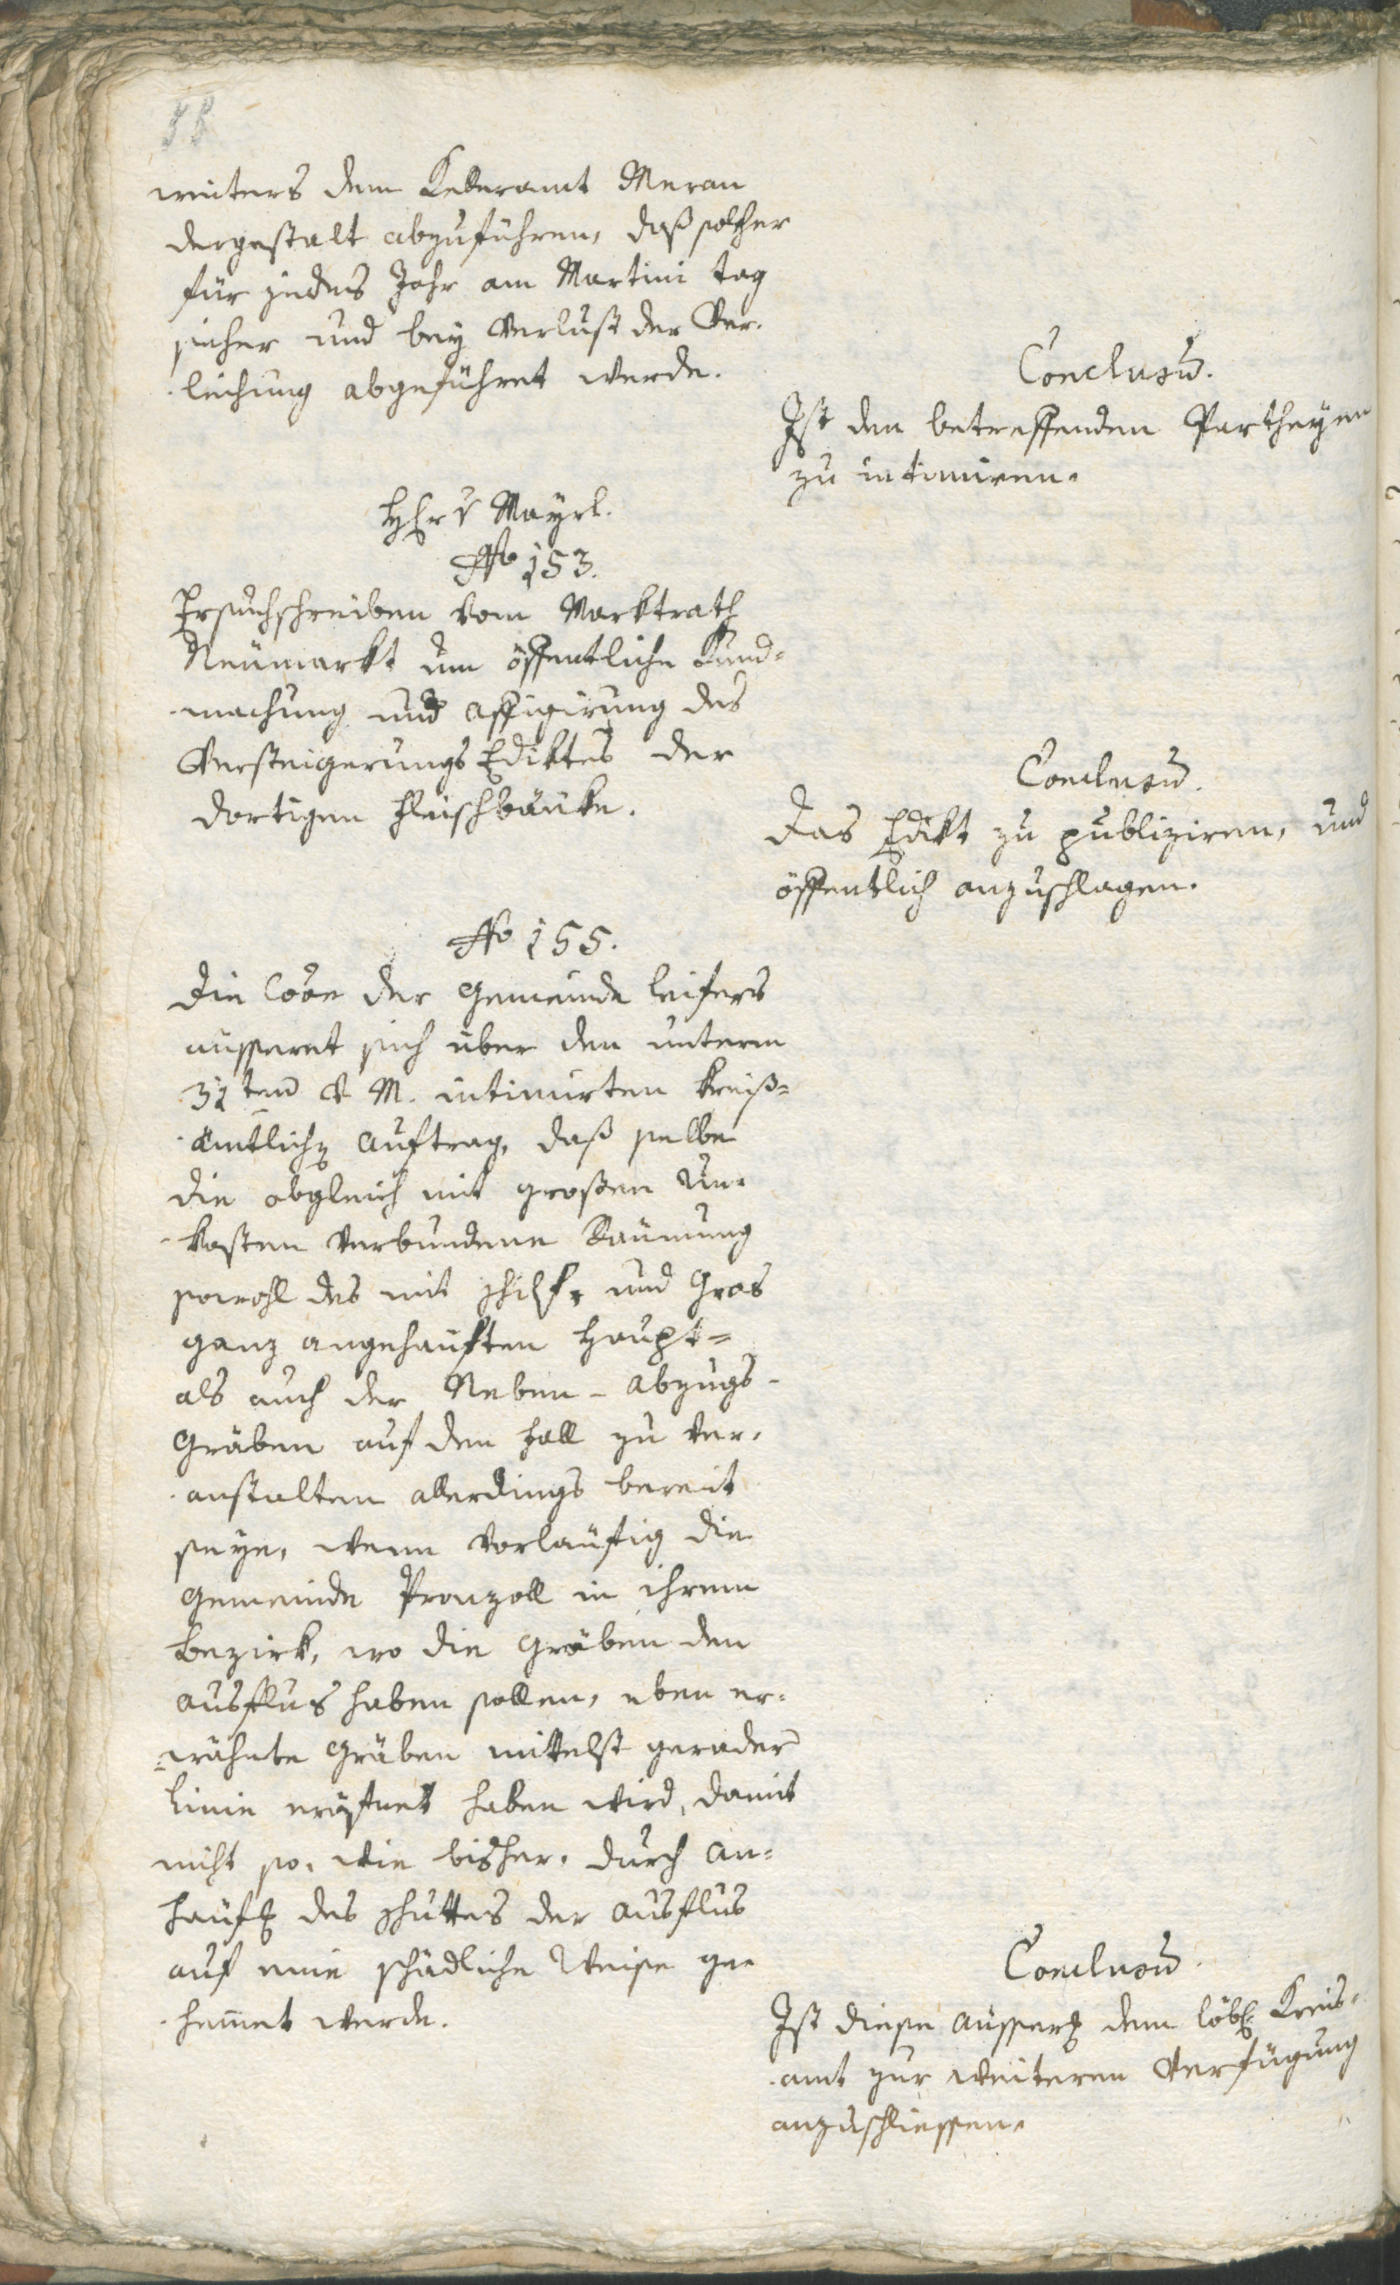 58
weiters dem Kelleramt Meran
dergestalt abzuführen, daß solcher
für jedes Jahr am Martini tag
sicher und bey Verlust der Ver-
leihung abgeführet werde.
Conclusum.
Ist den betreffenden Partheyen
zu intimiren.
Herr v Mayrl.
No 153.
Ersuchschreiben vom Marktrath
Neumarkt um öffentliche Kund-
machung und affigirung des
Versteigerungs Ediktes der
dortigen Fleischbänke.
Conclusum.
Das Edikt zu publiziren, und
öffentlich anzuschlagen.
No 155.
Die der Gemeinde Leifers
äusseret sich über den unterm
31ten v. M. intimirten kreiß-
ämtlichen Auftrag, daß selbe
die obgleich mit großen Un-
kosten verbundene Räumung
sowohl des mit Schilf, und Gras
ganz angehäuften Haupt-
als auch der Neben- Abzugs-
Gräben auf den Fall zu ver-
anstalten allerdings bereit
seye, wenn vorläufig die
Gemeinde Pronzoll in ihrem
Bezirk, wo die Gräben den
Ausflus haben sollen, eben er-
wähnte Gräben mittelst gerader
Linie eröfnet haben wird, damit
nicht so, wie bisher, durch An-
häufung des Schuttes der Ausflus
auf eine schädliche Weise ge-
hemmet werde.
Conclusum.
Ist diese Äusserung dem löbl. Kreis-
amt zur weiteren Verfügung
anzuschliessen.